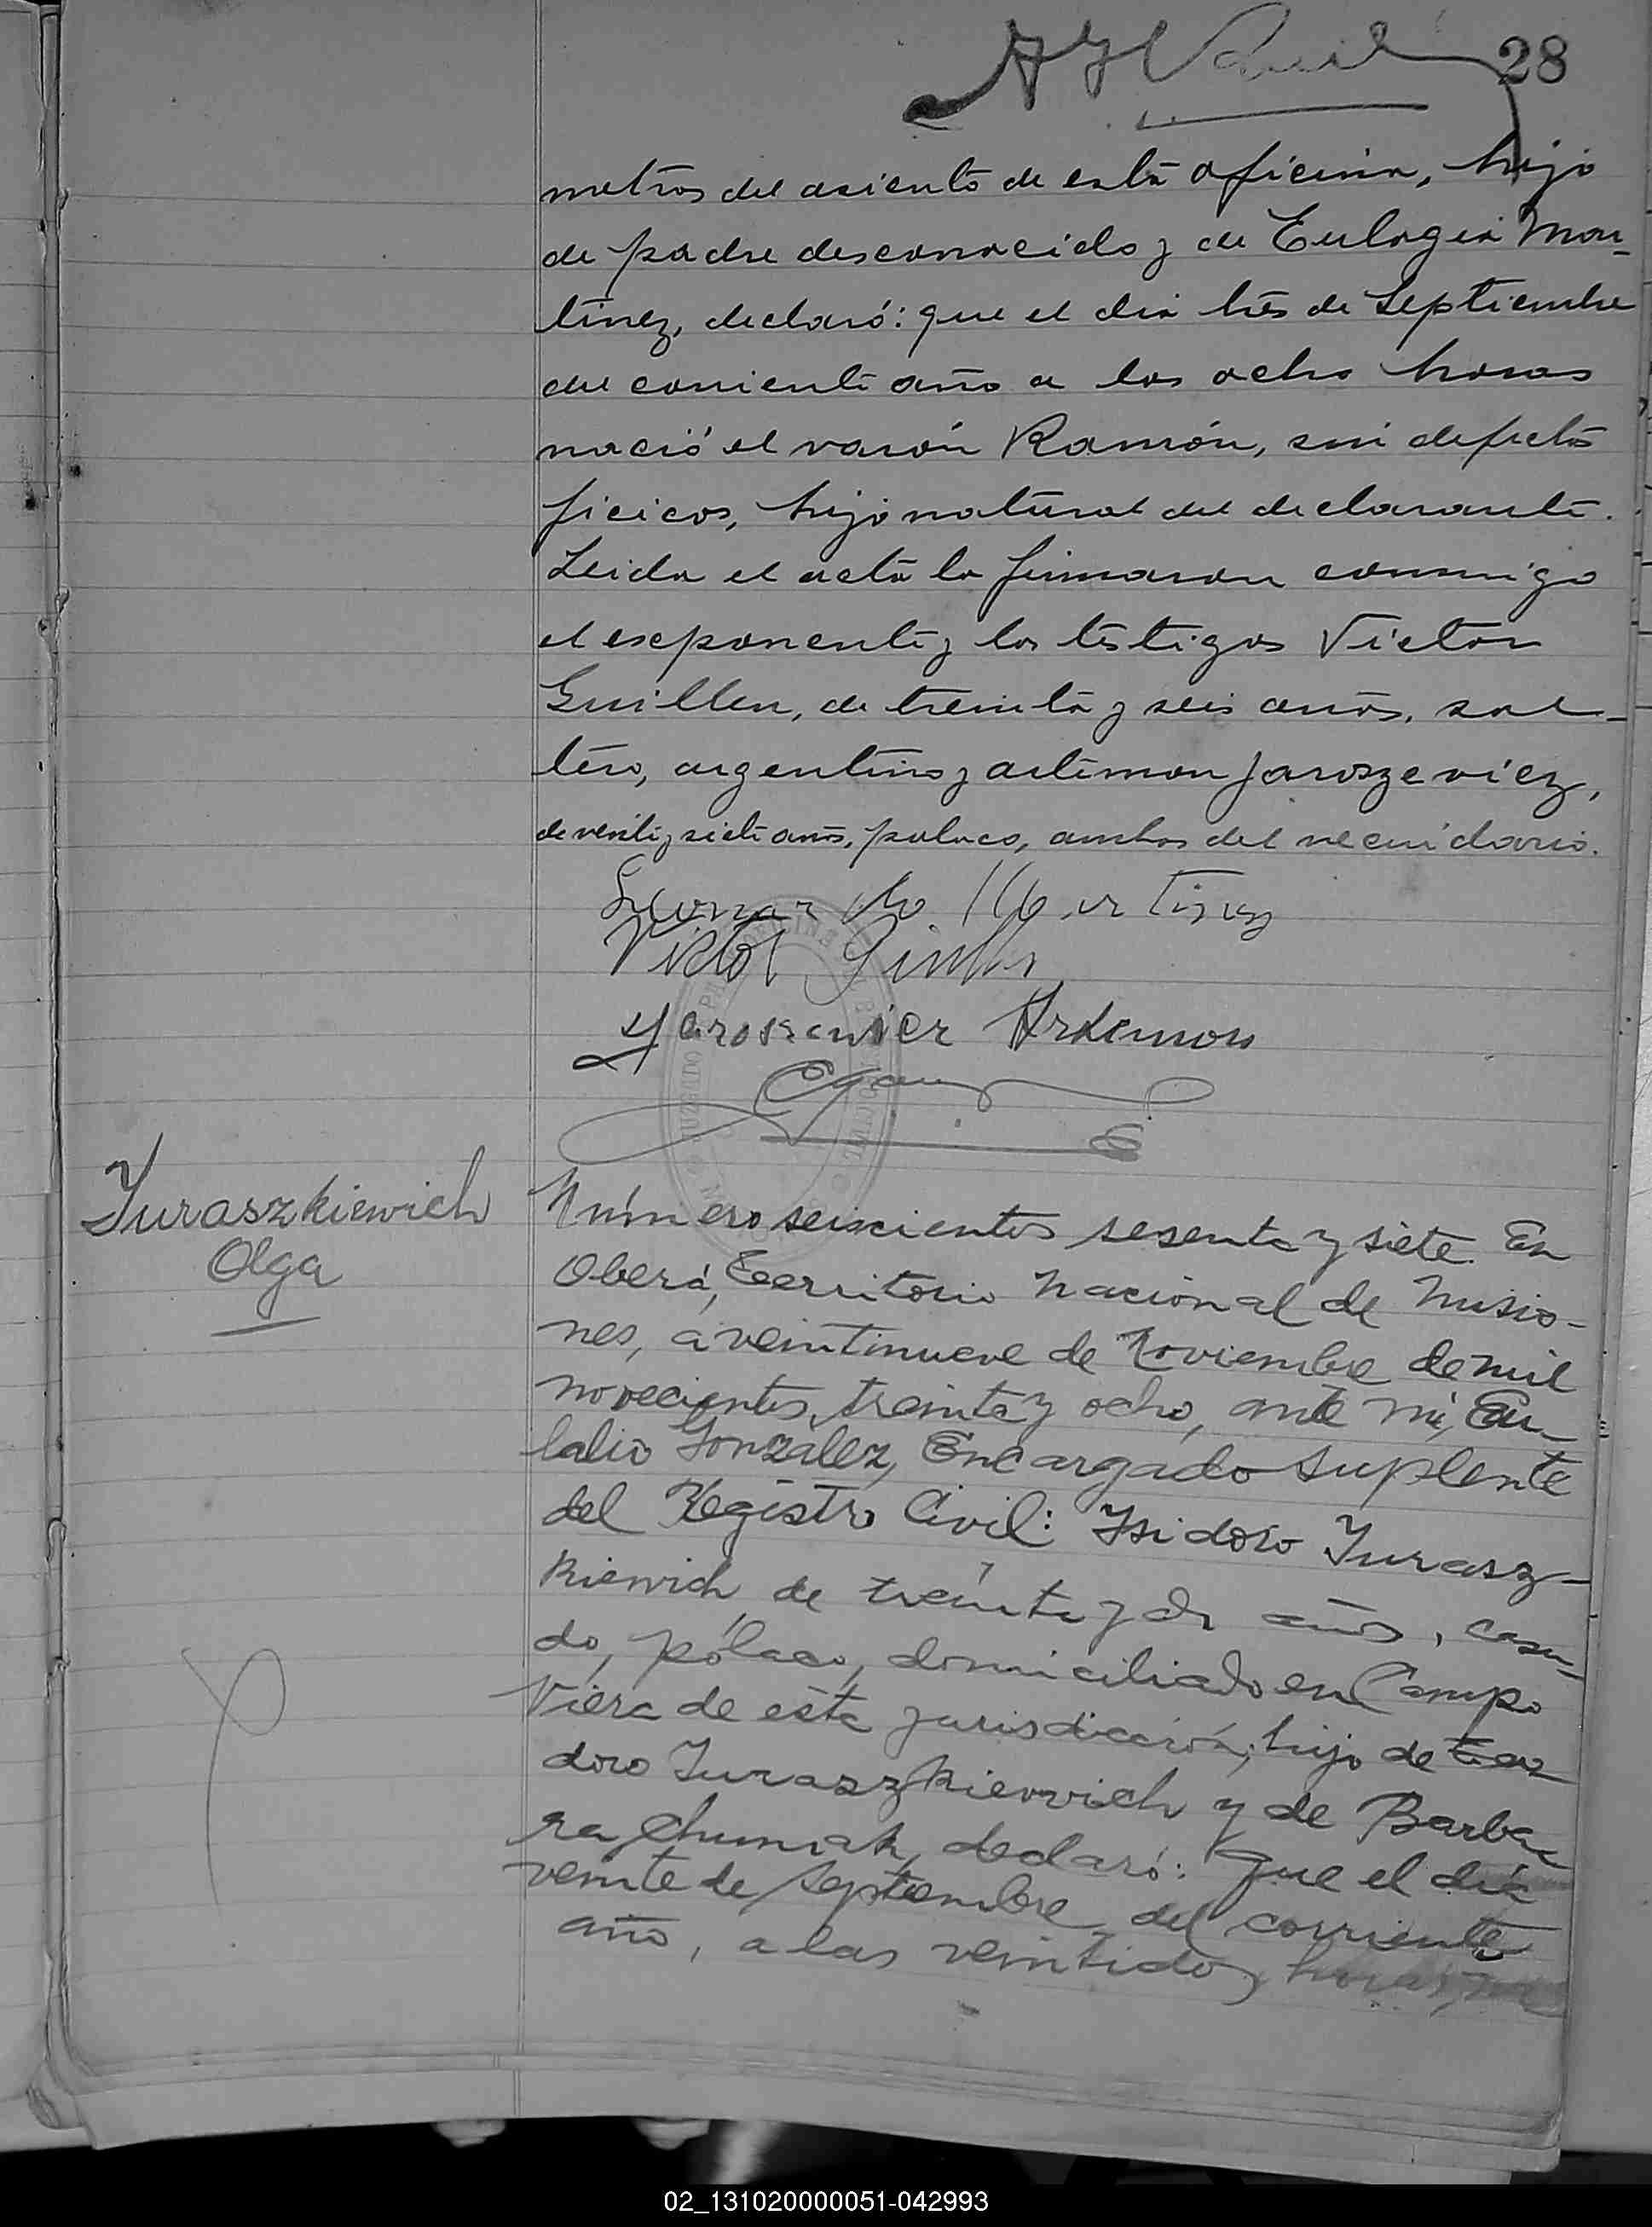 28
metros del asiento de esta oficina, hijo
de padre desconocido y de Eulogia Mar-
tinez, declaró: que el dia tres de Septiembre
del corriente año a las ocho horas
nació el varón Ramón, sin defectos
ficicos, hijo natural del declarante.
Leida el acta la firmaron conmigo
el exponente y los testigos Victor
Guillen, de treinta y seis años, sol-
tero, argentino y Artimon Jaroszeviez,
de veinte y siete años, polaco, ambos del vecindario.
Victor
Artemon
Juraszkiewich
Olga
Número seiscientos sesenta y siete. En
Oberá, Territorio Nacional de Misio-
nes, a veintinueve de Noviembre de mil
novecientos treinta y ocho, ante mi, Eu-
lalio González, Encargado Suplente
del Registro Civil: Ysidoro Jurasz-
kiewich de treinta y dos años, casa-
do, pólaco, domiciliado en Campo
Viera de ésta jurisdicción; hijo de
doro Juraszkiewich y de Barba-
ra Chumiak, declaró: Que el día
veinte de Septiembre del corriente
año, a las veintidos horas,
02_131020000051-042993